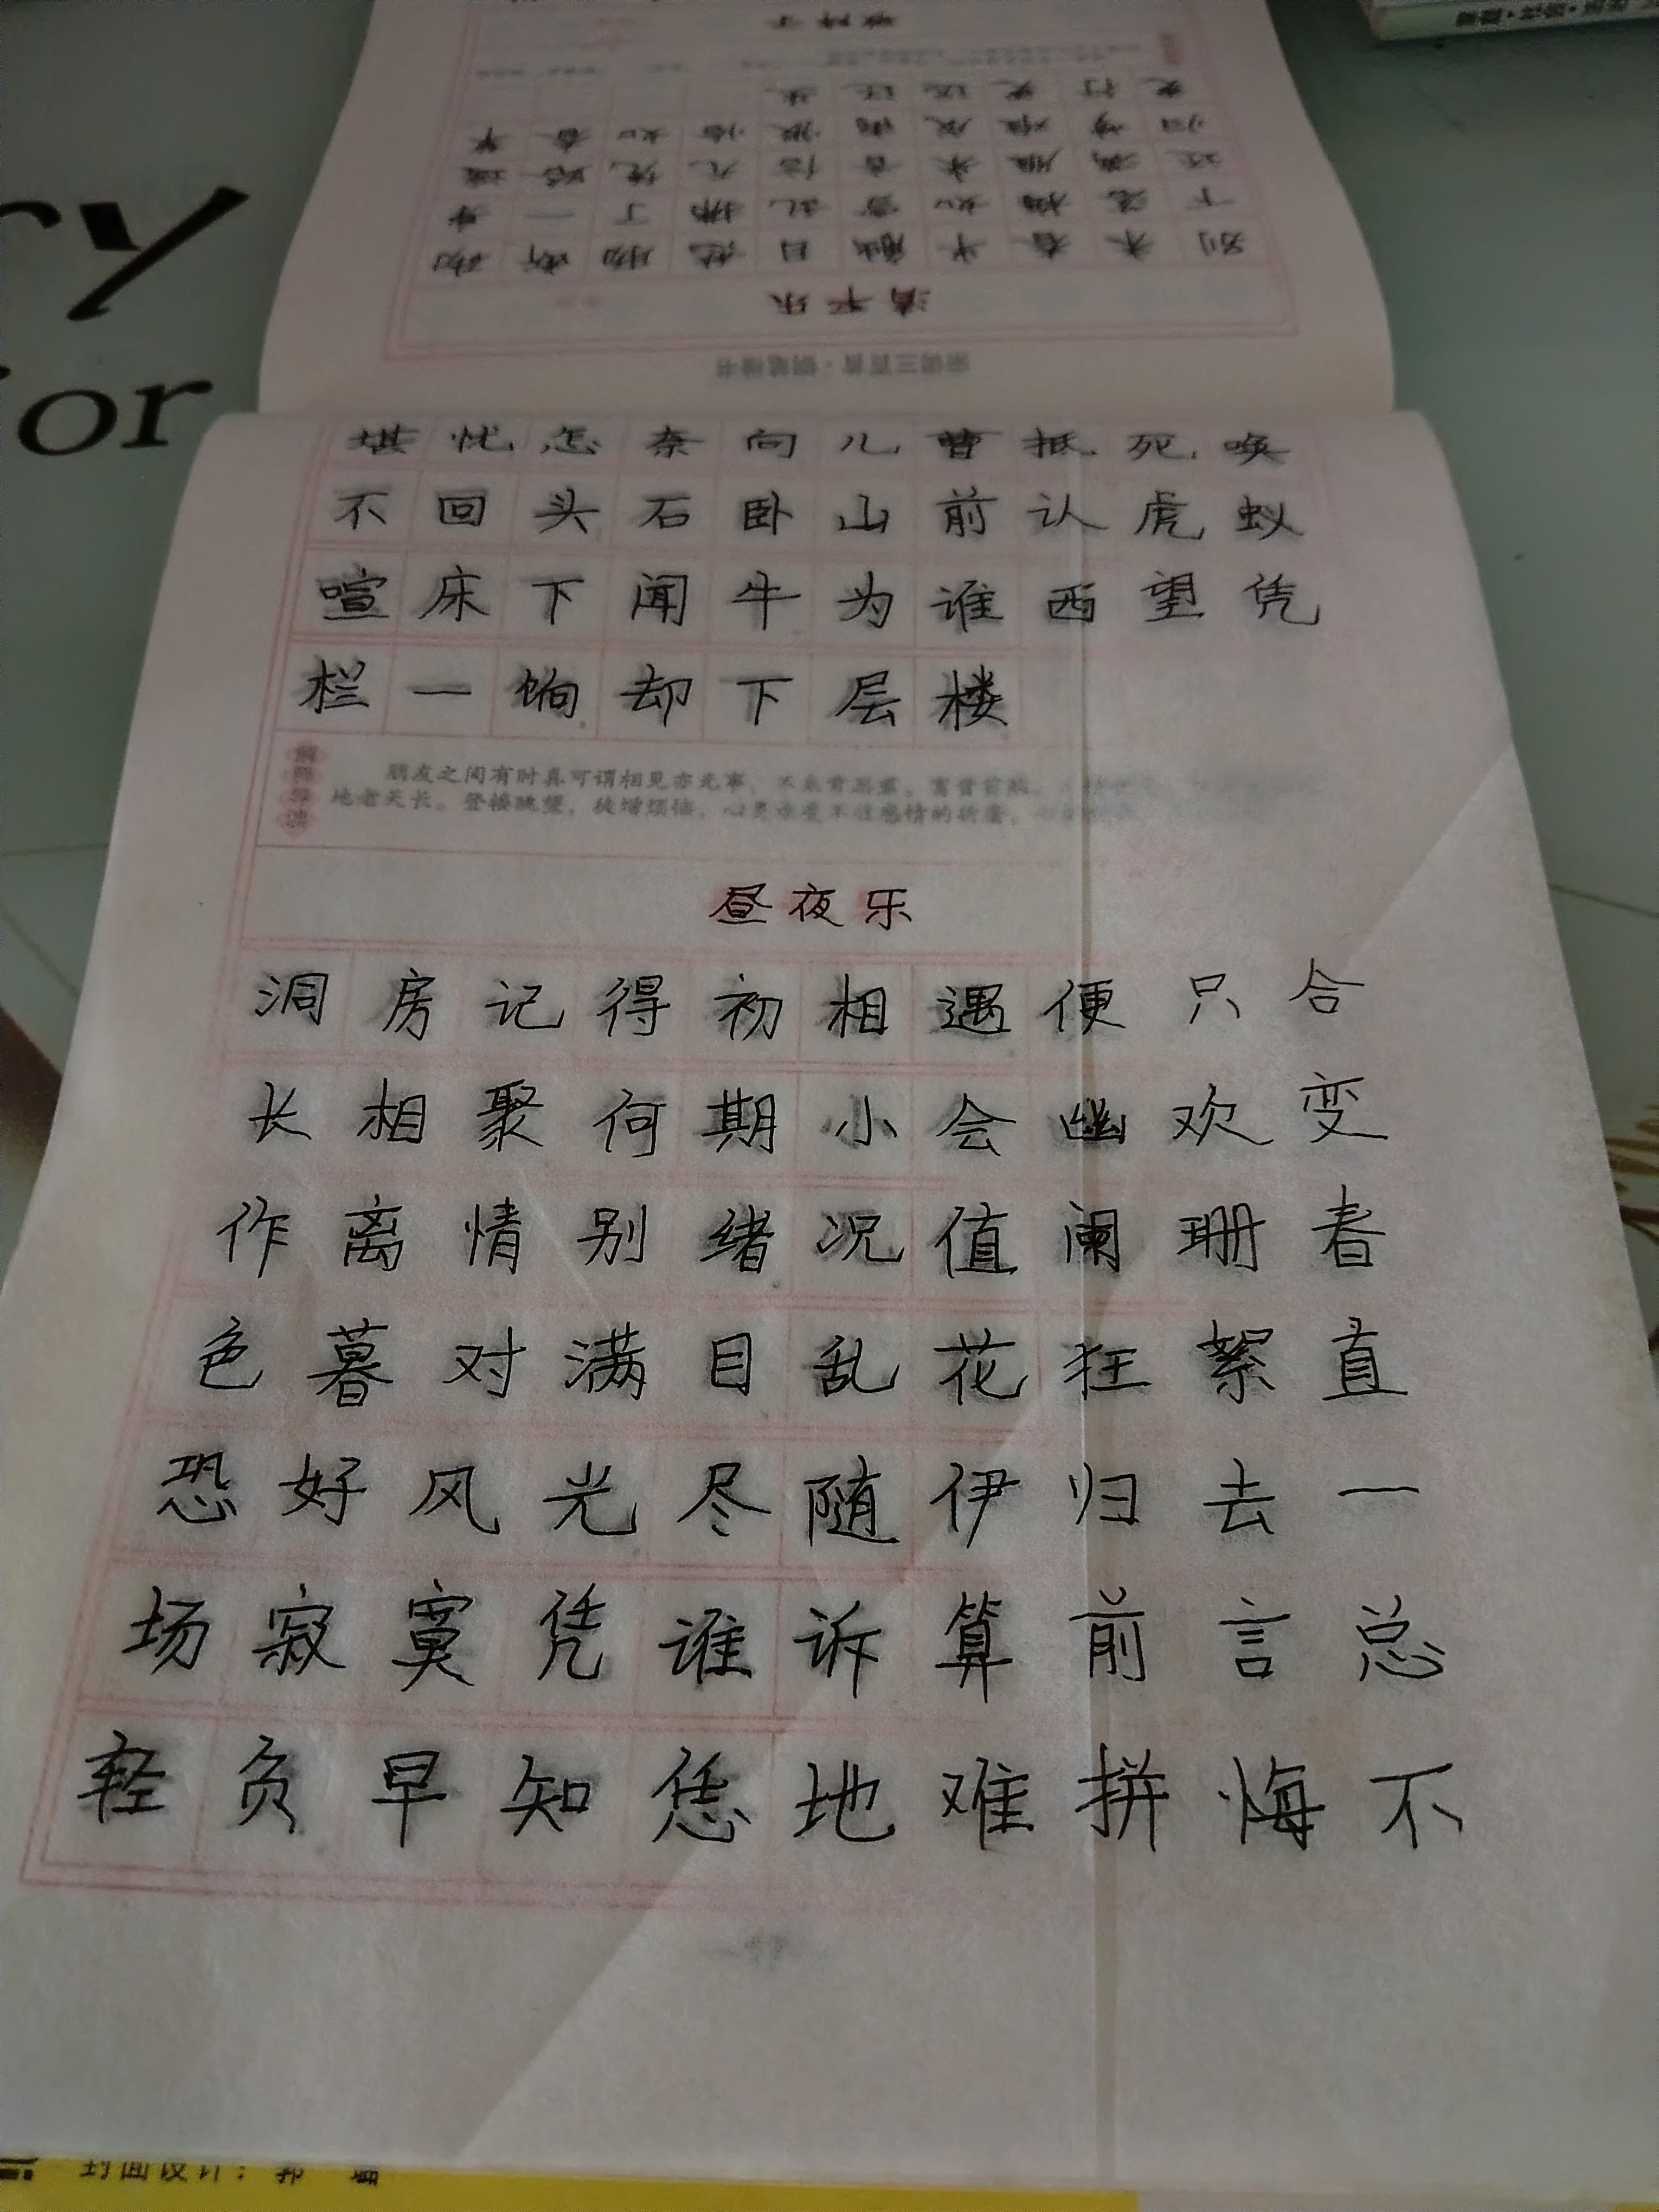 ry
or
清平乐
别来春半触目愁肠断砌
下落梅如雪乱拂了一身
还满雁来音信无凭路遥
归梦难成离恨恰如春草
更行更远还生
宋词三百首·钢笔楷书
堪忧怎奈向儿曹抵死唤
不回头石卧山前认虎蚁
喧床下闻牛为谁西望凭
栏一饷却下层楼
朋友之间有时真可谓相见亦无事，不来常思君。富贵前
地老天长。登楼眺望，徒增烦恼，心灵承受不住感情的折磨，
昼夜乐
洞房记得初相遇便只合
长相聚何期小会幽欢变
作离情别绪况值阑珊春
色暮对满目乱花狂絮直
恐好风光尽随伊归去一
场寂寞凭谁诉算前言总
轻负早知恁地难拼悔不
封面设计：郭